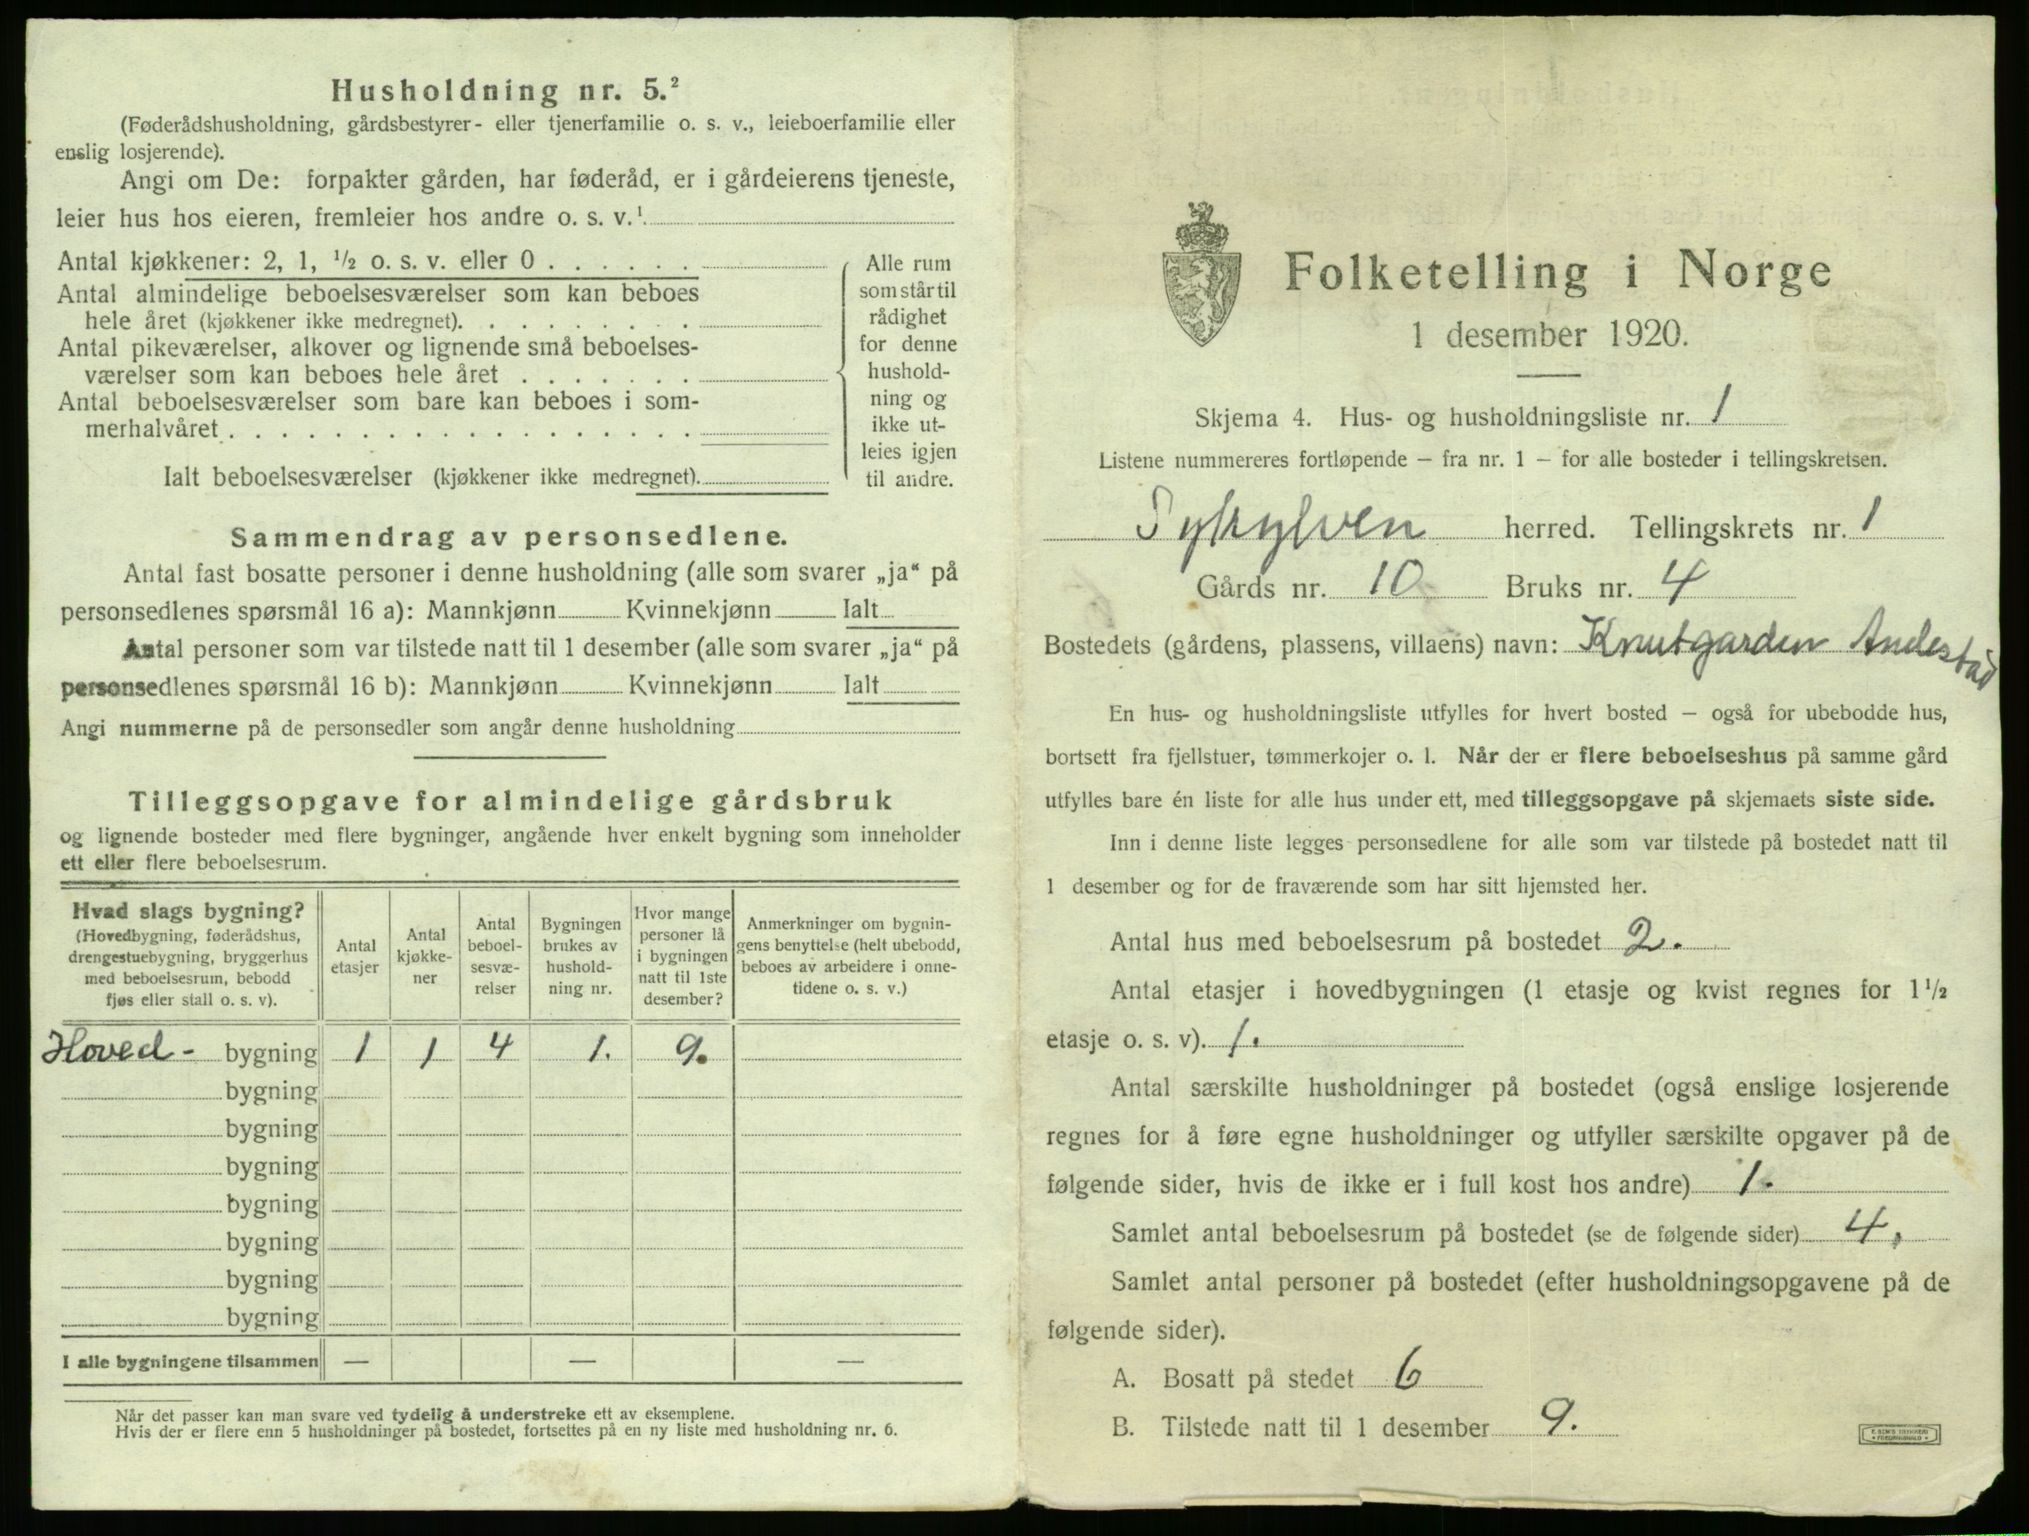 Husholdning nr. 5.²
(Føderådshusholdning, gårdsbestyrer- eller tjenerfamilie o. s. v., leieboerfamilie eller
enslig losjerende).
Angi om De: forpakter gården, har føderåd, er i gårdeierens tjeneste,
leier hus hos eieren, fremleier hos andre o. s. v.¹
Antal kjøkkener: 2, 1, ½ o. s. v. eller 0 . . . . . .
Antal almindelige beboelsesværelser som kan beboes
hele året (kjøkkener ikke medregnet). . . . . . . . .
Antal pikeværelser, alkover og lignende små beboelses-
værelser som kan beboes hele året . . . . . . .
Antal beboelsesværelser som bare kan beboes i som-
merhalvåret . . . . . . . . . . . . . . . . . .
Ialt beboelsesværelser (kjøkkener ikke medregnet).
Alle rum
som står til
rådighet
for denne
hushold-
ning og
ikke ut-
leies igjen
til andre.
Sammendrag av personsedlene.
Antal fast bosatte personer i denne husholdning (alle som svarer „ja“ på
personsedlenes spørsmål 16 a): Mannkjønn Kvinnekjønn Ialt
Antal personer som var tilstede natt til 1 desember (alle som svarer „ja“ på
personsedlenes spørsmål 16 b): Mannkjønn Kvinnekjønn Ialt
Angi nummerne på de personsedler som angår denne husholdning
Tilleggsopgave for almindelige gårdsbruk
og lignende bosteder med flere bygninger, angående hver enkelt bygning som inneholder
ett eller flere beboelsesrum.
Hvad slags bygning?
(Hovedbygning, føderådshus,
drengestuebygning, bryggerhus
med beboelsesrum, bebodd
fjøs eller stall o. s. v).
Antal
etasjer
Antal
kjøkke-
ner
Antal
beboel-
sesvæ-
relser
Bygningen
brukes av
hushold-
ning nr.
Hvor mange
personer lå
i bygningen
natt til 1ste
desember?
Anmerkninger om bygnin-
gens benyttelse (helt ubebodd,
beboes av arbeidere i onne-
tidene o. s. v.)
Hoved- bygning 1 1 4 1. 9.
bygning
bygning
bygning
bygning
bygning
bygning
bygning
I alle bygningene tilsammen — — —
Når det passer kan man svare ved tydelig å understreke ett av eksemplene.
Hvis der er flere enn 5 husholdninger på bostedet, fortsettes på en ny liste med husholdning nr. 6.
Folketelling i Norge
1 desember 1920.
Skjema 4. Hus- og husholdningsliste nr. 1
Listene nummereres fortløpende – fra nr. 1 – for alle bosteder i tellingskretsen.
Sykkylven herred. Tellingskrets nr. 1
Gårds nr. 10 Bruks nr. 4
Bostedets (gårdens, plassens, villaens) navn: Knutgarden Andestad
En hus- og husholdningsliste utfylles for hvert bosted – også for ubebodde hus,
bortsett fra fjellstuer, tømmerkojer o. l. Når der er flere beboelseshus på samme gård
utfylles bare én liste for alle hus under ett, med tilleggsopgave på skjemaets siste side.
Inn i denne liste legges personsedlene for alle som var tilstede på bostedet natt til
1 desember og for de fraværende som har sitt hjemsted her.
Antal hus med beboelsesrum på bostedet 2.
Antal etasjer i hovedbygningen (1 etasje og kvist regnes for 1½
etasje o. s. v). 1.
Antal særskilte husholdninger på bostedet (også enslige losjerende
regnes for å føre egne husholdninger og utfyller særskilte opgaver på de
følgende sider, hvis de ikke er i full kost hos andre) 1.
Samlet antal beboelsesrum på bostedet (se de følgende sider) 4.
Samlet antal personer på bostedet (efter husholdningsopgavene på de
følgende sider).
A. Bosatt på stedet 6
B. Tilstede natt til 1 desember 9.